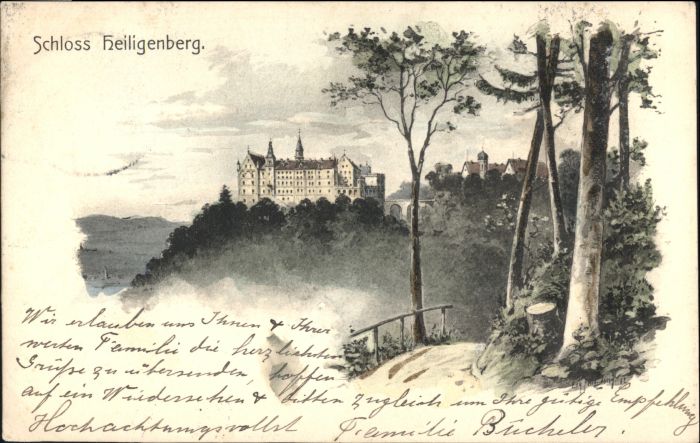 Schloss Heiligenberg.
Wir erlauben uns Ihnen & Ihrer
werten Familie die herzlichsten
Grüße zu übersenden, hoffen
auf ein Wiedersehen & bitten zugleich um Ihre gütige Empfehlung
Hochachtungsvollst Familie Bücheler.